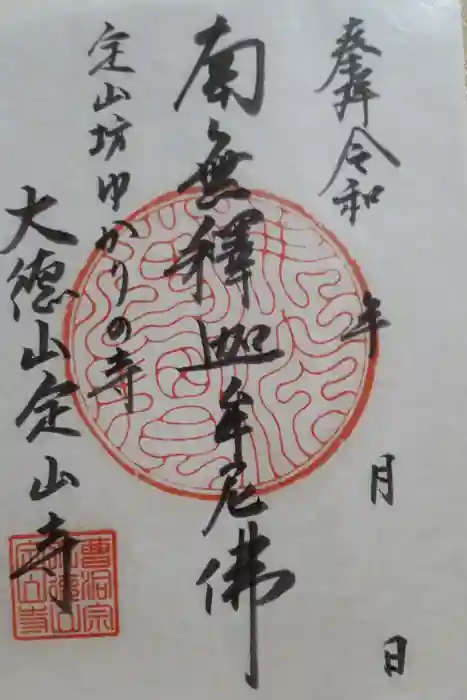 奉拝 令和 年 月 日
南無釋迦牟尼佛
定山坊ゆかりの寺
大徳山定山寺
曹洞宗
大徳山
定山寺